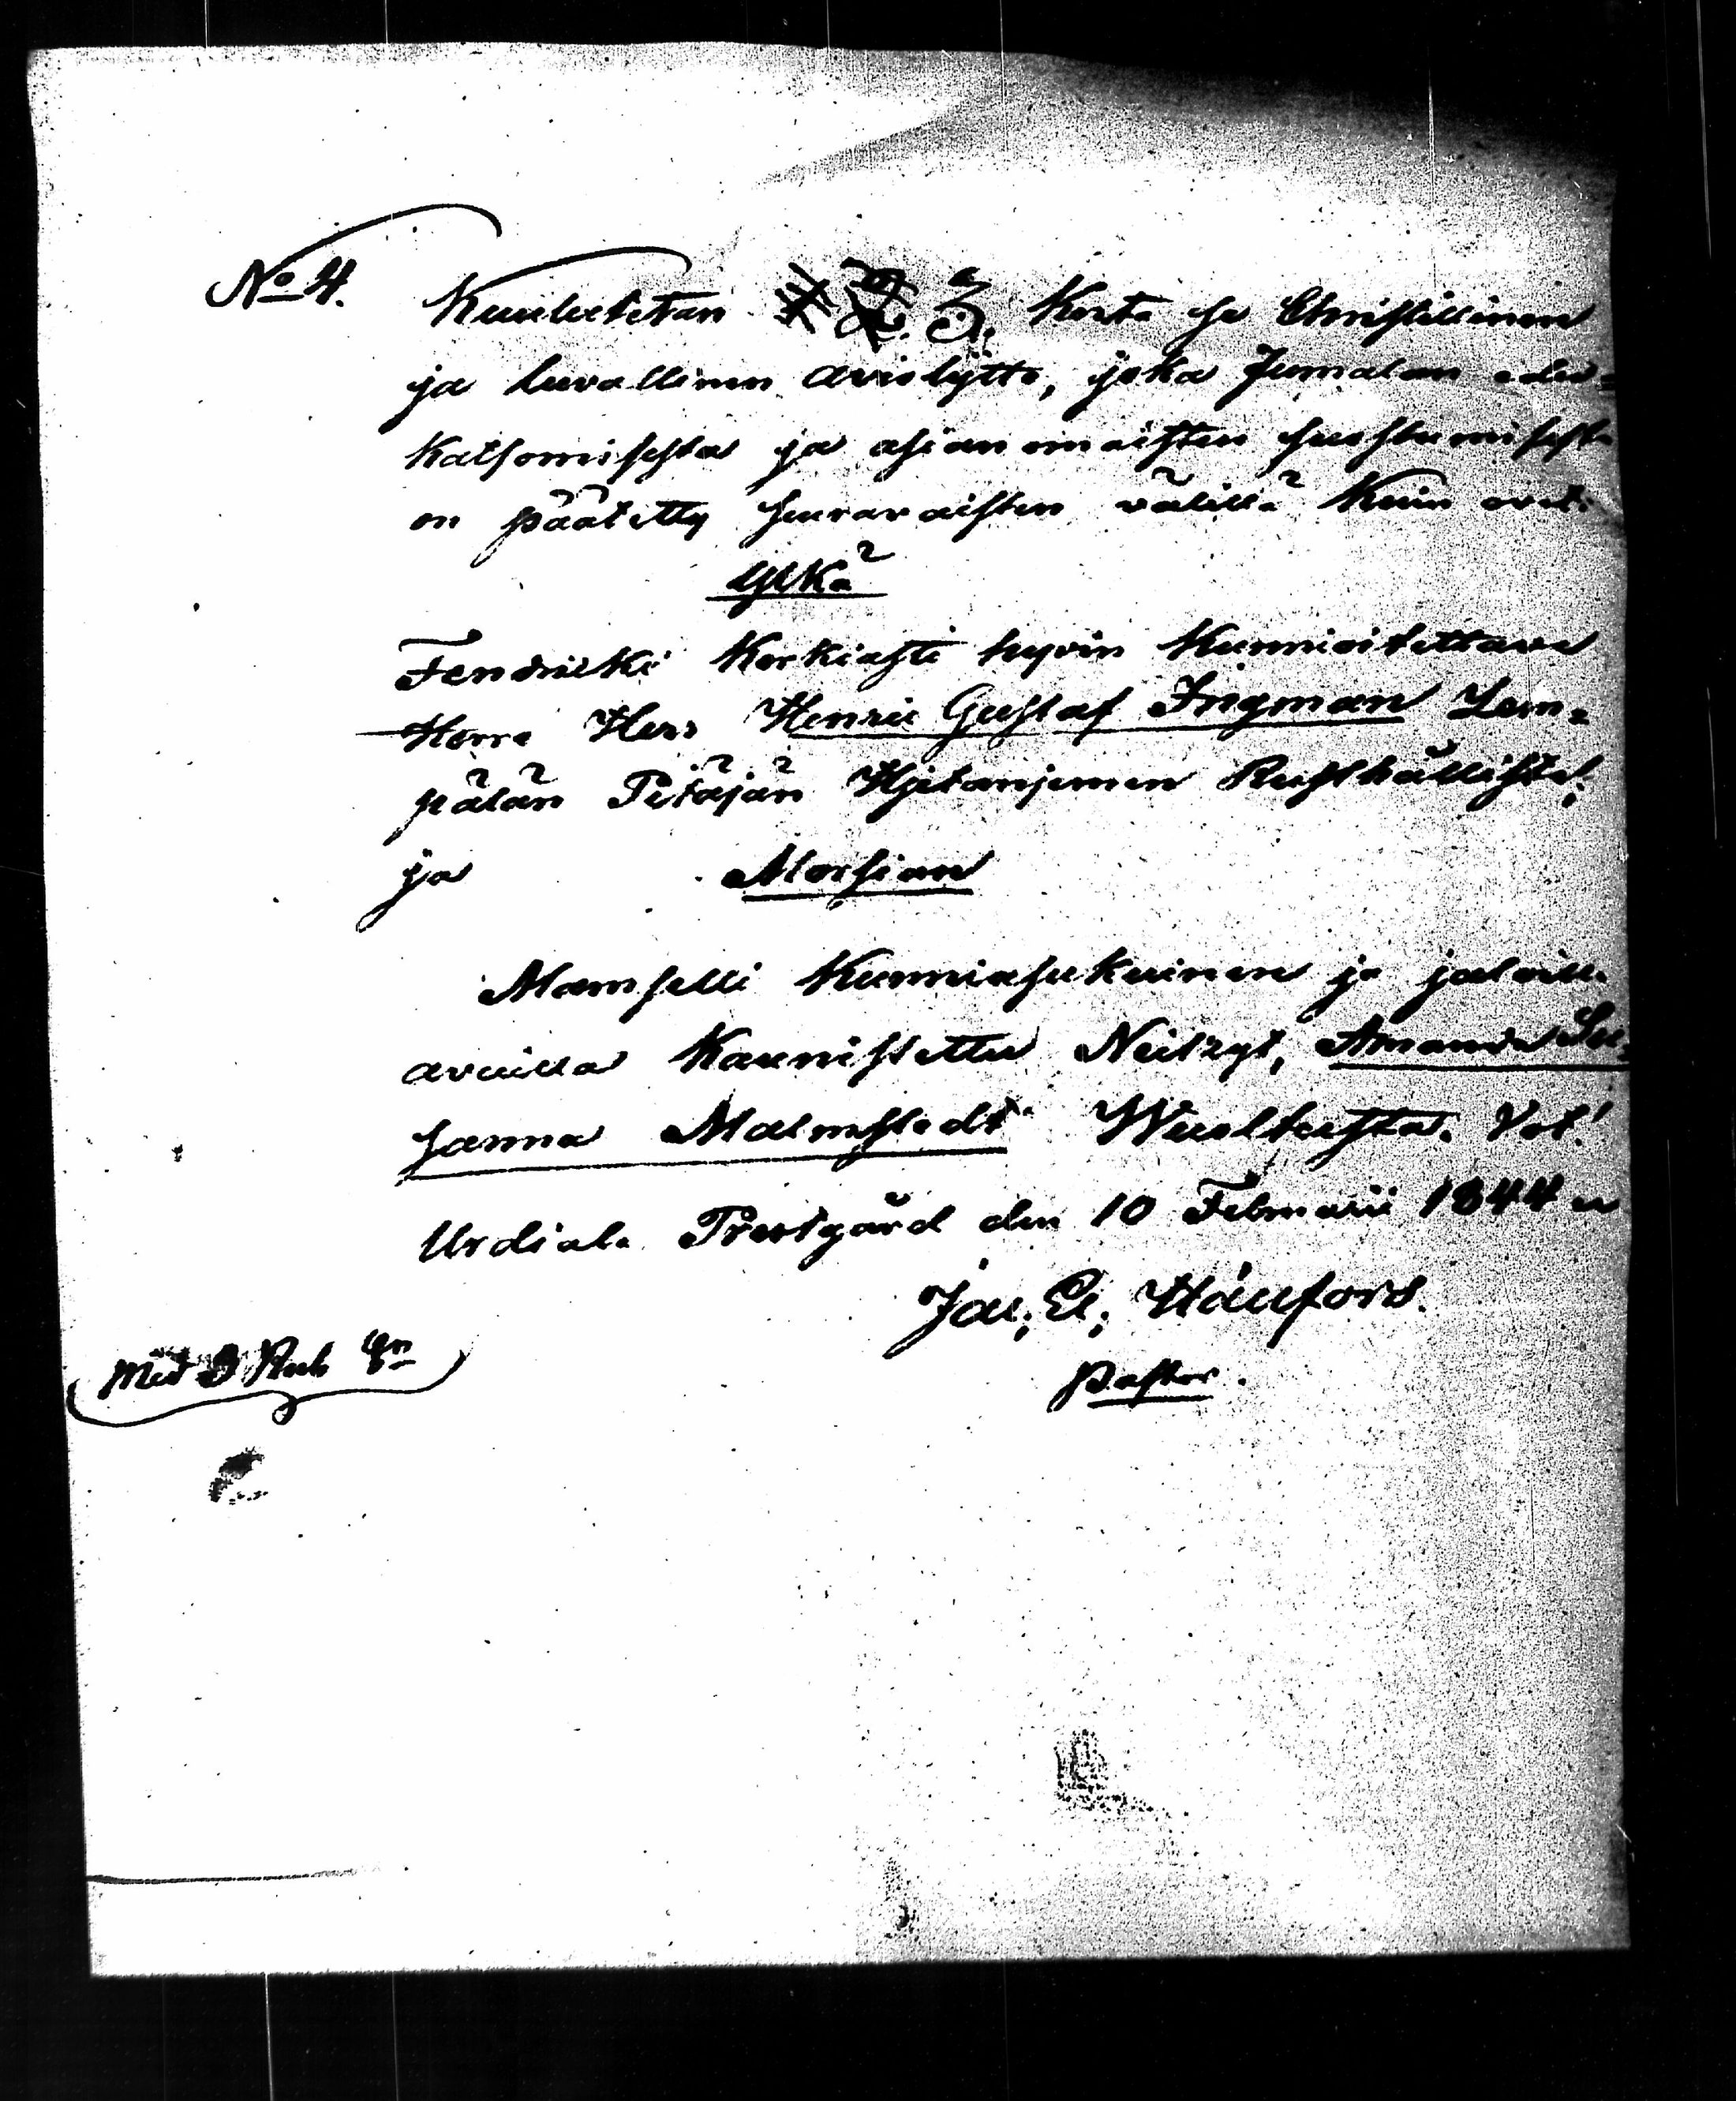 No 4.
Kuulutetan 3. Kerta se Christillinen
ja luvallinen aviolijtto, joka Jumalan edes=
katsomisesta ja asianomaisten suostumisesta
on päätetty seuravaisten välillä Kuin ovat:
Ylkä
Fendriki Korkiasti hyvin Kunnioitettava
Herra Herr Henric Gustaf Ingman Lem=
pälän Pitäjän Hjetanjemen Rusthållista;
ja Morsian
Mamselli Kunniasukuinen ja jaloilla
avuilla Kaunistettu Neitzyt, Amanda Su=
sanna Malmstedt Wuoltusta. Vot!
Urdiala Prestgård den 10 Februarii 1844
Jac; El; Hänfors.
Pastor.
Med 3 Rub